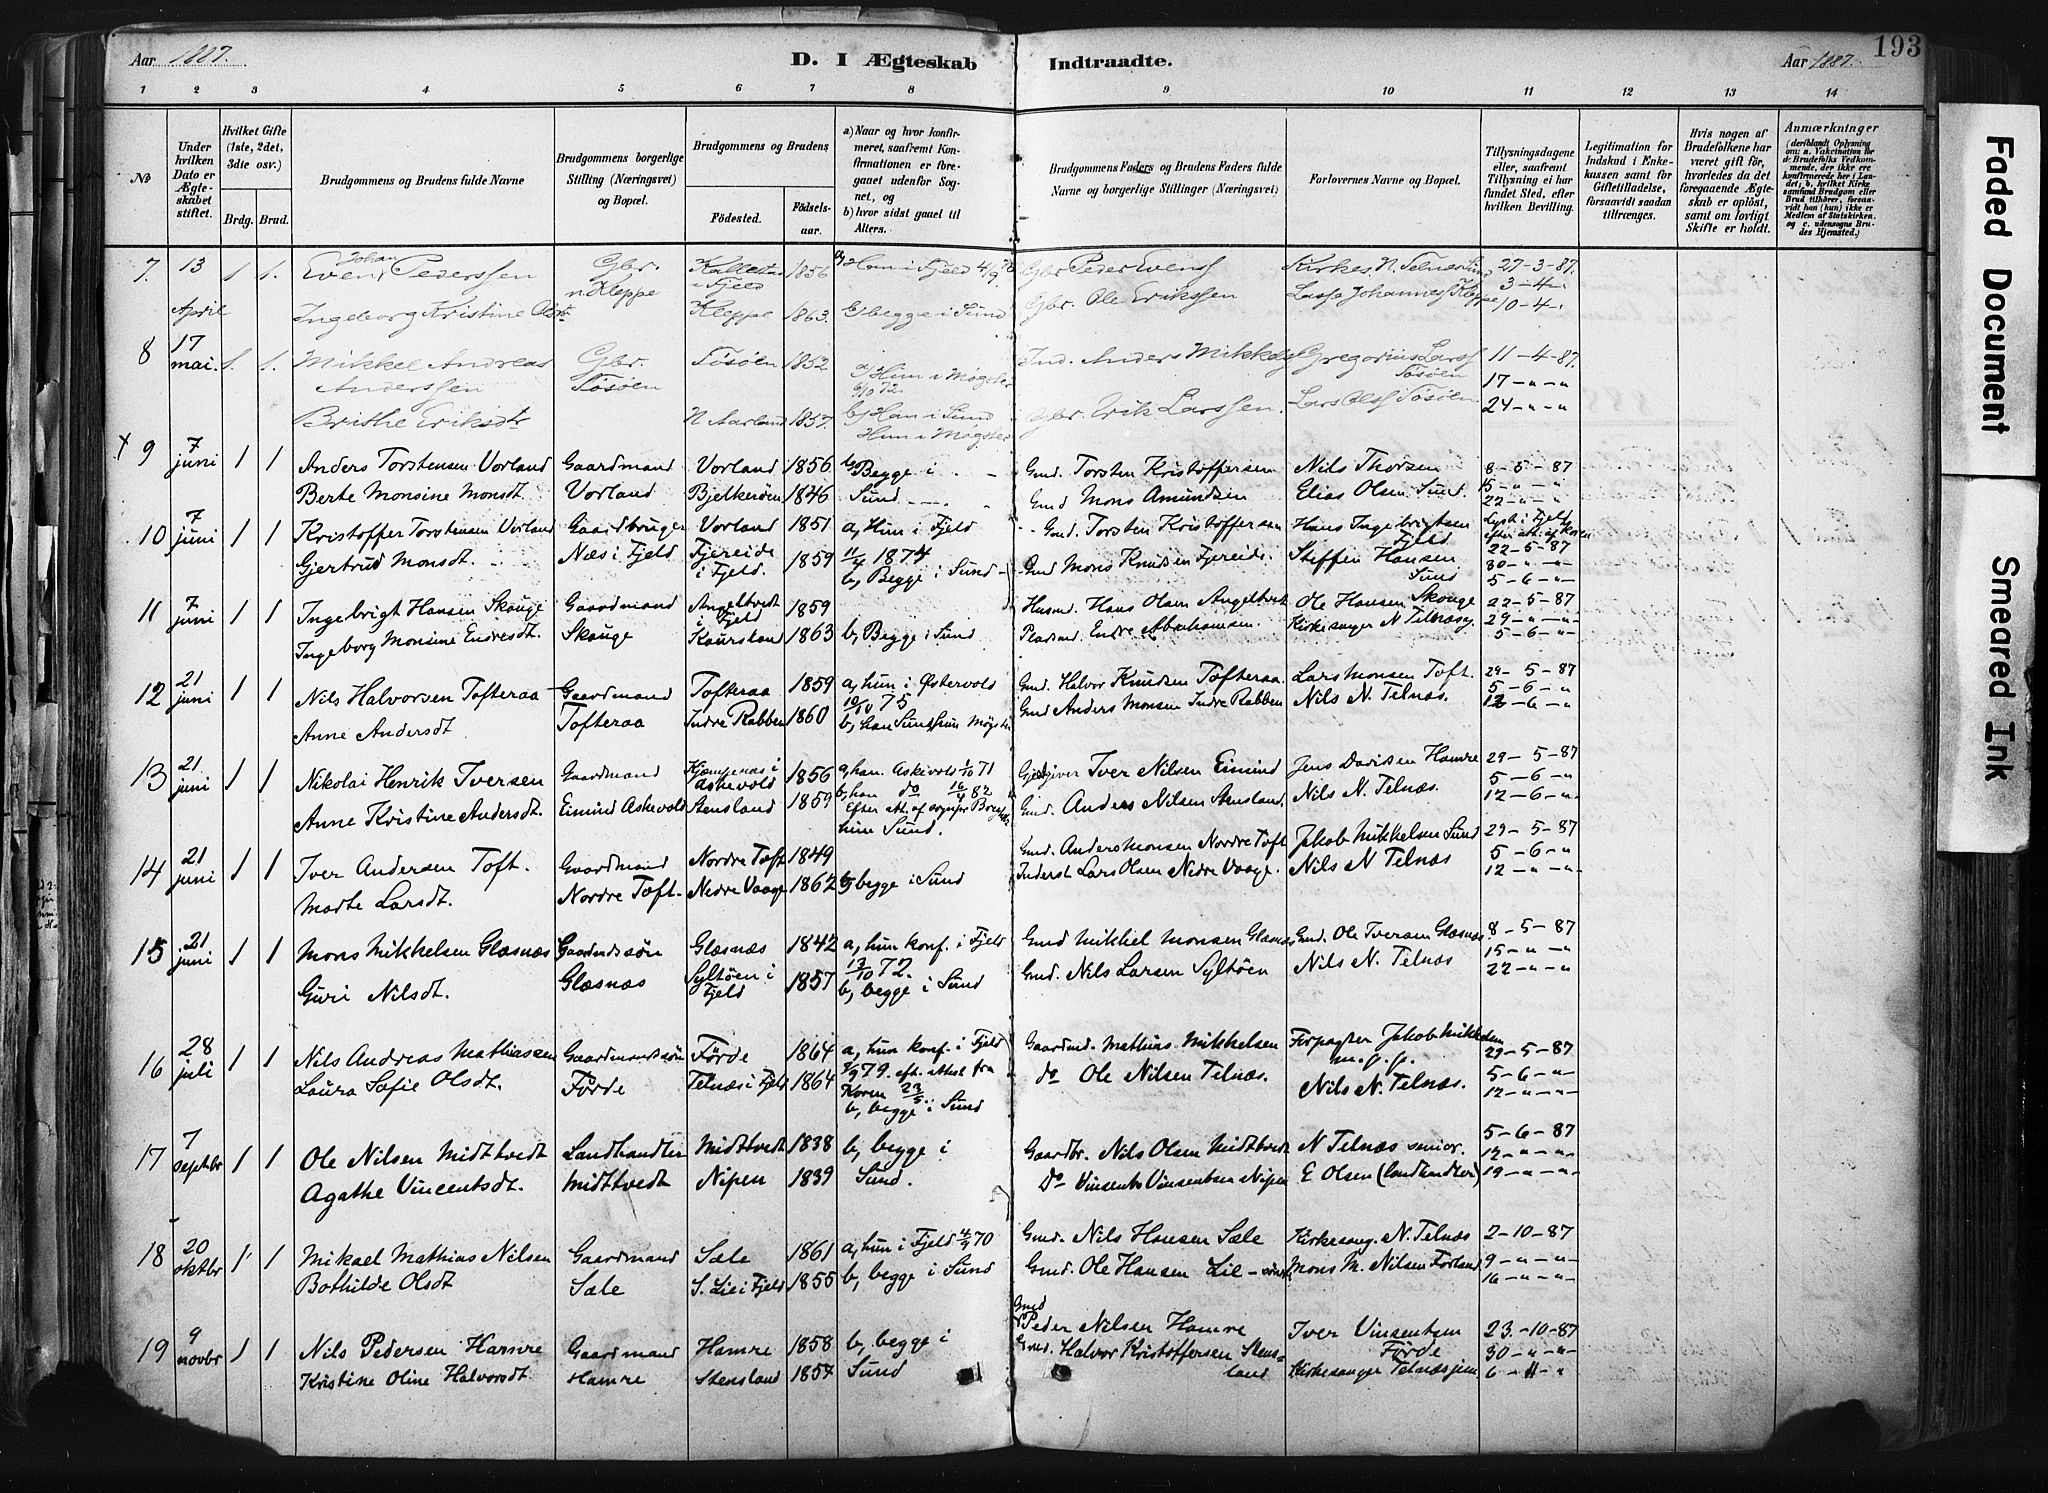 Aar 1887.
D. I Ægteskab
Indtraadte.
Aar 1887.
193
1 2 3 4 5 6 7 8 9 10 11 12 13 14
No
Under hvilken Dato er Ægteskabet stiftet.
Hvilket Gifte (1ste, 2det, 3dte osv.)
Brdg. Brud.
Brudgommens og Brudens fulde Navne
Brudgommens borgerlige Stilling (Næringsvei) og Bopæl.
Brudgommens og Brudens
Födested.
Födselsaar.
a) Naar og hvor konfirmeret, saafremt Konfirmationen er foregaaet udenfor Sognet, og
b) hvor sidst gaaet til Alters.
Brudgommens Faders og Brudens Faders fulde Navne og borgerlige Stillinger (Næringsvei)
Forlovernes Navne og Bopæl.
Tillysningsdagene eller, saafremt Tillysning ei har fundet Sted, efter hvilken Bevilling.
Legitimation for Indskud i Enkekassen samt for Giftetilladelse, forsaavidt saadan tiltrænges.
Hvis nogen af Brudefolkene har været gift för, hvorledes da det foregaaende Ægteskab er oplöst, samt om lovligt Skifte er holdt.
Anmærkninger
(deriblandt Oplysning om: a. Vaccination for de Brudefolks Vedkommende, der ikke ere konfirmerede her i Landet; b. hvilket Kirkesamfund Brudgom eller Brud tilhörer, forsaavidt han (hun) ikke er Medlem af Statskirken, og c. udensogns Brudes Hjemsted.)
7. 13 1 1. Even Johan Pederssen Gbr. 1856 Han i Fjeld Gbr Peder Evens Kirkes. N. Telnæs Sund 27-3-87.
n. Kleppe i Fjeld 3-4-
April Ingeborg Kristine Kleppe 1863. b) begge i Sund Gbr. Ole Erikssen Lasse Johanness Kleppe 10-4-
8 17 mai. 1. 1. Mikkel Andreas Gbr. Tösöen 1852 a) Hun i Møgster Ind. Anders Mikkels Gregorius Larss 11-4-87.
Anderssen Tösöen 72 Tösöen 17-"-"
Brithe Eriksdtr N. Aarland 1857. b) Han i Sund Gbr. Erik Larssen. Lars Olss Tösöen 24-"-"
Hun i Møgster
9 7 juni 1 1 Anders Torstensen Vorland Gaardmand Vorland 1856 b) Begge i Gmd. Torsten Kristoffersen Nils Thorsen 8-5-87
Berte Monsine Monsdt. Vorland Bjelkeröen 1846 Sund Gmd Mons Amundsen Elias Olsen Sund. 15-"-"
22-"-"
10 7 juni 1 1 Kristoffer Torstensen Vorland Gaardbruger Vorland 1851 a, Hun i Fjeld Gmd. Torsten Kristoffersen Hans Ingebrigtsen Fjeld Lyst i Fjeld
efter att. af Koren
Gjertrud Monsdt. Næs i Fjeld Fjereide i Fjeld. 1859 11/4 1874 Gmd Mons Knudsen Fjereide. Steffen Hansen Sund 22-5-87
b, Begge i Sund 30-"-"
5-6-"
11 7 juni 1 1 Ingebrigt Hansen Skouge Gaardmand Angeltvedt i Fjeld 1859 Husmd. Hans Olsen Angeltvedt Ole Hansen Skouge 22-5-87
Ingeborg Monsine Endresdt. Skouge 1863 b, Begge i Sund Pladsmd. Endre Abrahamsen Kirkesanger N Telnæs 29-"-"
5-6-"
12 21 juni 1 1 Nils Halvorsen Tofteraa Gaardmand Tofteraa 1859 a, hun i Østervold Gmd. Halvor Knudsen Tofteraa. Lars Monsen Toft. 29-5-87
Anne Andersdt Tofteraa Indre Rabben 1860 75 Gmd Anders Monsen Indre Rabben Nils N. Telnæs. 5-6-"
b, han Sund, hun Møgster 12-6-"
13 21 juni 1 1 Nikolai Henrik Iversen Gaardmand Askevold 1856 a, han. Askevold 1/10 71 Iver Nilsen Eimind Jens Davidsen Hamre 29-5-87
Anne Kristine Andersdt. Eimind Askevold Stensland 1859 b, han do 16/4 82 Gmd. Anders Nilsen Stensland. Nils N. Telnæs. 5-6-"
hun Sund. 12-6-"
14 21 juni 1 1 Iver Andersen Toft. Gaardmand Nordre Toft 1849 Gmd. Anders Monsen Nordre Toft Jakob Mikkelsen Sund 29-5-87
Marte Larsdt. Nordre Toft. Nedre Vaage 1862 b, begge i Sund Inderst Lars Olsen Nedre Vaage. Nils N Telnæs 5-6-"
12-"-"
15 21 juni 1 1 Mons Mikkelsen Glæsnæs Gaardmdssön Glæsnæs 1842 a, hun konf. i Fjeld Gmd Mikkel Monsen Glæsnæs Gmd. Ole Iversen Glæsnæs. 8-5-87
Guri Nilsdt. Glæsnæs Syltöen i Fjeld 1857 13/10 72. Gmd. Nils Larsen Syltöen Nils N. Telnæs 15-"-"
b, begge i Sund 22-"-"
16 28 juli 1 1 Nils Andreas Mathiassen Gaardmandssön Førde 1864 a, hun konf. i Fjeld Gaardmd. Mathias Mikkelsen Forpagter Jakob Mikkelsen 29-5-87
Laura Sofie Olsdt. Förde Telnæs i Fjeld 1864 79. eft. attest fra Koren 23/5. do Ole Nilsen Telnæs. Nils N. Telnæs. 5-6-"
b, begge i Sund 12-"-"
17 7 septbr 1 1 Ole Nilsen Midttvedt Landhandler Midttvedt 1838 b, begge i Gaardbr. Nils Olsen Midttvedt N Telnæs senior. 5-6-87
Agathe Vincentsdt. Midttvedt Nipen 1839 Sund. Do Vinsents Vinsentsen Nipen E Olsen (landhandler) 12-"-"
19-"-"
18 20 oktbr 1 1 Mikael Mathias Nilsen Gaardmand Sæle 1861 a, hun i Fjeld 4/9 70 Gmd. Nils Hansen Sæle Kirkesang. N. Telnæs 2-10-87
Bothilde Olsdt Sæle S. Lie i Fjeld 1855 b, begge i Sund Gmd. Ole Hansen Lie Mons M. Nilsen Forland 9-"-"
16-"-"
19 9 novbr 1 1 Nils Pedersen Hamre Gaardmand Hamre 1858 b, begge i Gmd Peder Nilsen Hamre Iver Vinsentsen Förde 23-10-87
Kristine Oline Halvorsdt. Hamre Stensland 1857 Sund Gmd. Halvor Kristoffersen Stensland Kirkesanger Telnæs jun 30-"-"
6-11-"
Faded Document
Smeared Ink